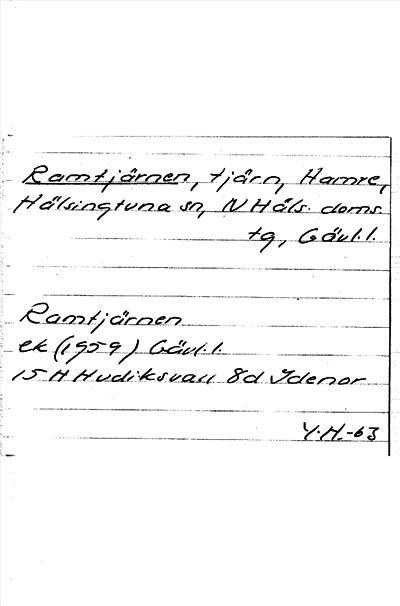 Ramtjärnen, tjärn, Hamre,
Hälsingtuna sn, N Häls. doms.
tg, Gävl.l.
Ramtjärnen
ek (1959) Gävl.l.
15 H Hudiksvall 8d Idenor
Y.H.-63